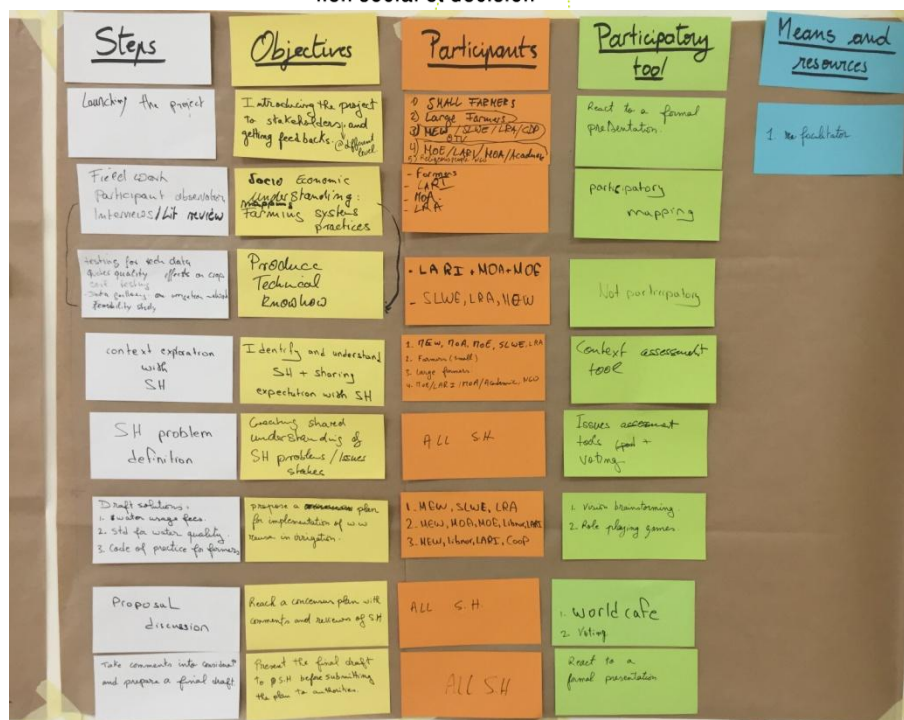 non social et décision
Steps
Objectives
Participants
Participatory
tool
Means and
resources
Launching the project
Introducing the project
to stakeholders, and
getting feedbacks. @different
level
1) SMALL FARMERS
2) Large Farmers
3) MEW/SLWE/LRA/CDR
4) MOE/LARI/MOA/Academic
React to a formal
presentation.
1. no facilitator
Field work
Participant observation
Interviews/Lit review
Socio Economic
understanding:
mapping
farming systems
practices
- Farmers
- LARI
- MOA.
- LRA
participatory
mapping
testing for tech data
quality effects on crops
soil testing
Data gathering on irrigation
feasibility study
Produce
Technical
knowhow
- LARI + MOA + MOE
- SLWE, LRA, MEW
Not participatory
context exploration
with
SH
Identify and understand
SH + sharing
expectation with SH
1. MEW, MOA, MOE, SLWE, LRA
2. Farmers (small)
3. Large farmers
4. MOE/LARI/MOA/Academic, NGO
Context assessment
tool
SH problem
definition
Creating shared
understanding of
SH problems/Issues
stakes
ALL SH
Issues assessment
tools +
voting
Draft solutions.
1. water usage fees.
2. Std for water quality.
3. Code of practice for farmers
prepare a plan
for implementation of w.w
reuse in irrigation.
1. MEW, SLWE, LRA
2. MEW, MOA, MOE, Libnor, LARI
3. MEW, Libnor, LARI, Coop
1. Vision brainstorming
2. Role playing games.
Proposal
discussion
Reach a concensus plan with
comments and reviews of SH
ALL S.H.
1. world cafe
2. Voting
Take comments into considerat
and prepare a final draft
Present the final draft
to S.H before submitting
the plan to authorities.
ALL SH
React to a
formal presentation